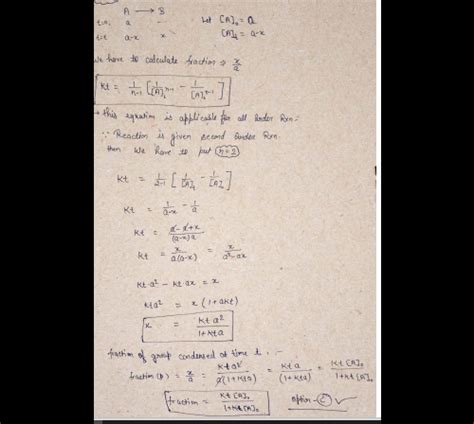 A ⟶ B
t=0, a — Let [A]₀ = a
t=t a-x x [A]t = a-x
We have to calculate fraction ⇒ x/a
Kt = 1/(n-1) [1/[A]t^(n-1) - 1/[A]₀^(n-1)]
→ this equation is applicable for all order Rxn:
∵ Reaction is given second order Rxn.
then we have to put n=2
Kt = 1/(2-1) [1/[A]t - 1/[A]₀]
Kt = 1/(a-x) - 1/a
Kt = (a-a+x)/((a-x)a)
Kt = x/(a(a-x)) = x/(a²-ax)
Kt·a² - Kt·ax = x
Kta² = x(1+aKt)
x = Kta²/(1+Kta)
fraction of group condensed at time t, :-
fraction (p) = x/a = Kta²/(a(1+Kta)) = Kta/(1+Kta) = Kt[A]₀/(1+Kt[A]₀)
fraction = Kt[A]₀/(1+Kt[A]₀) option - C ✓